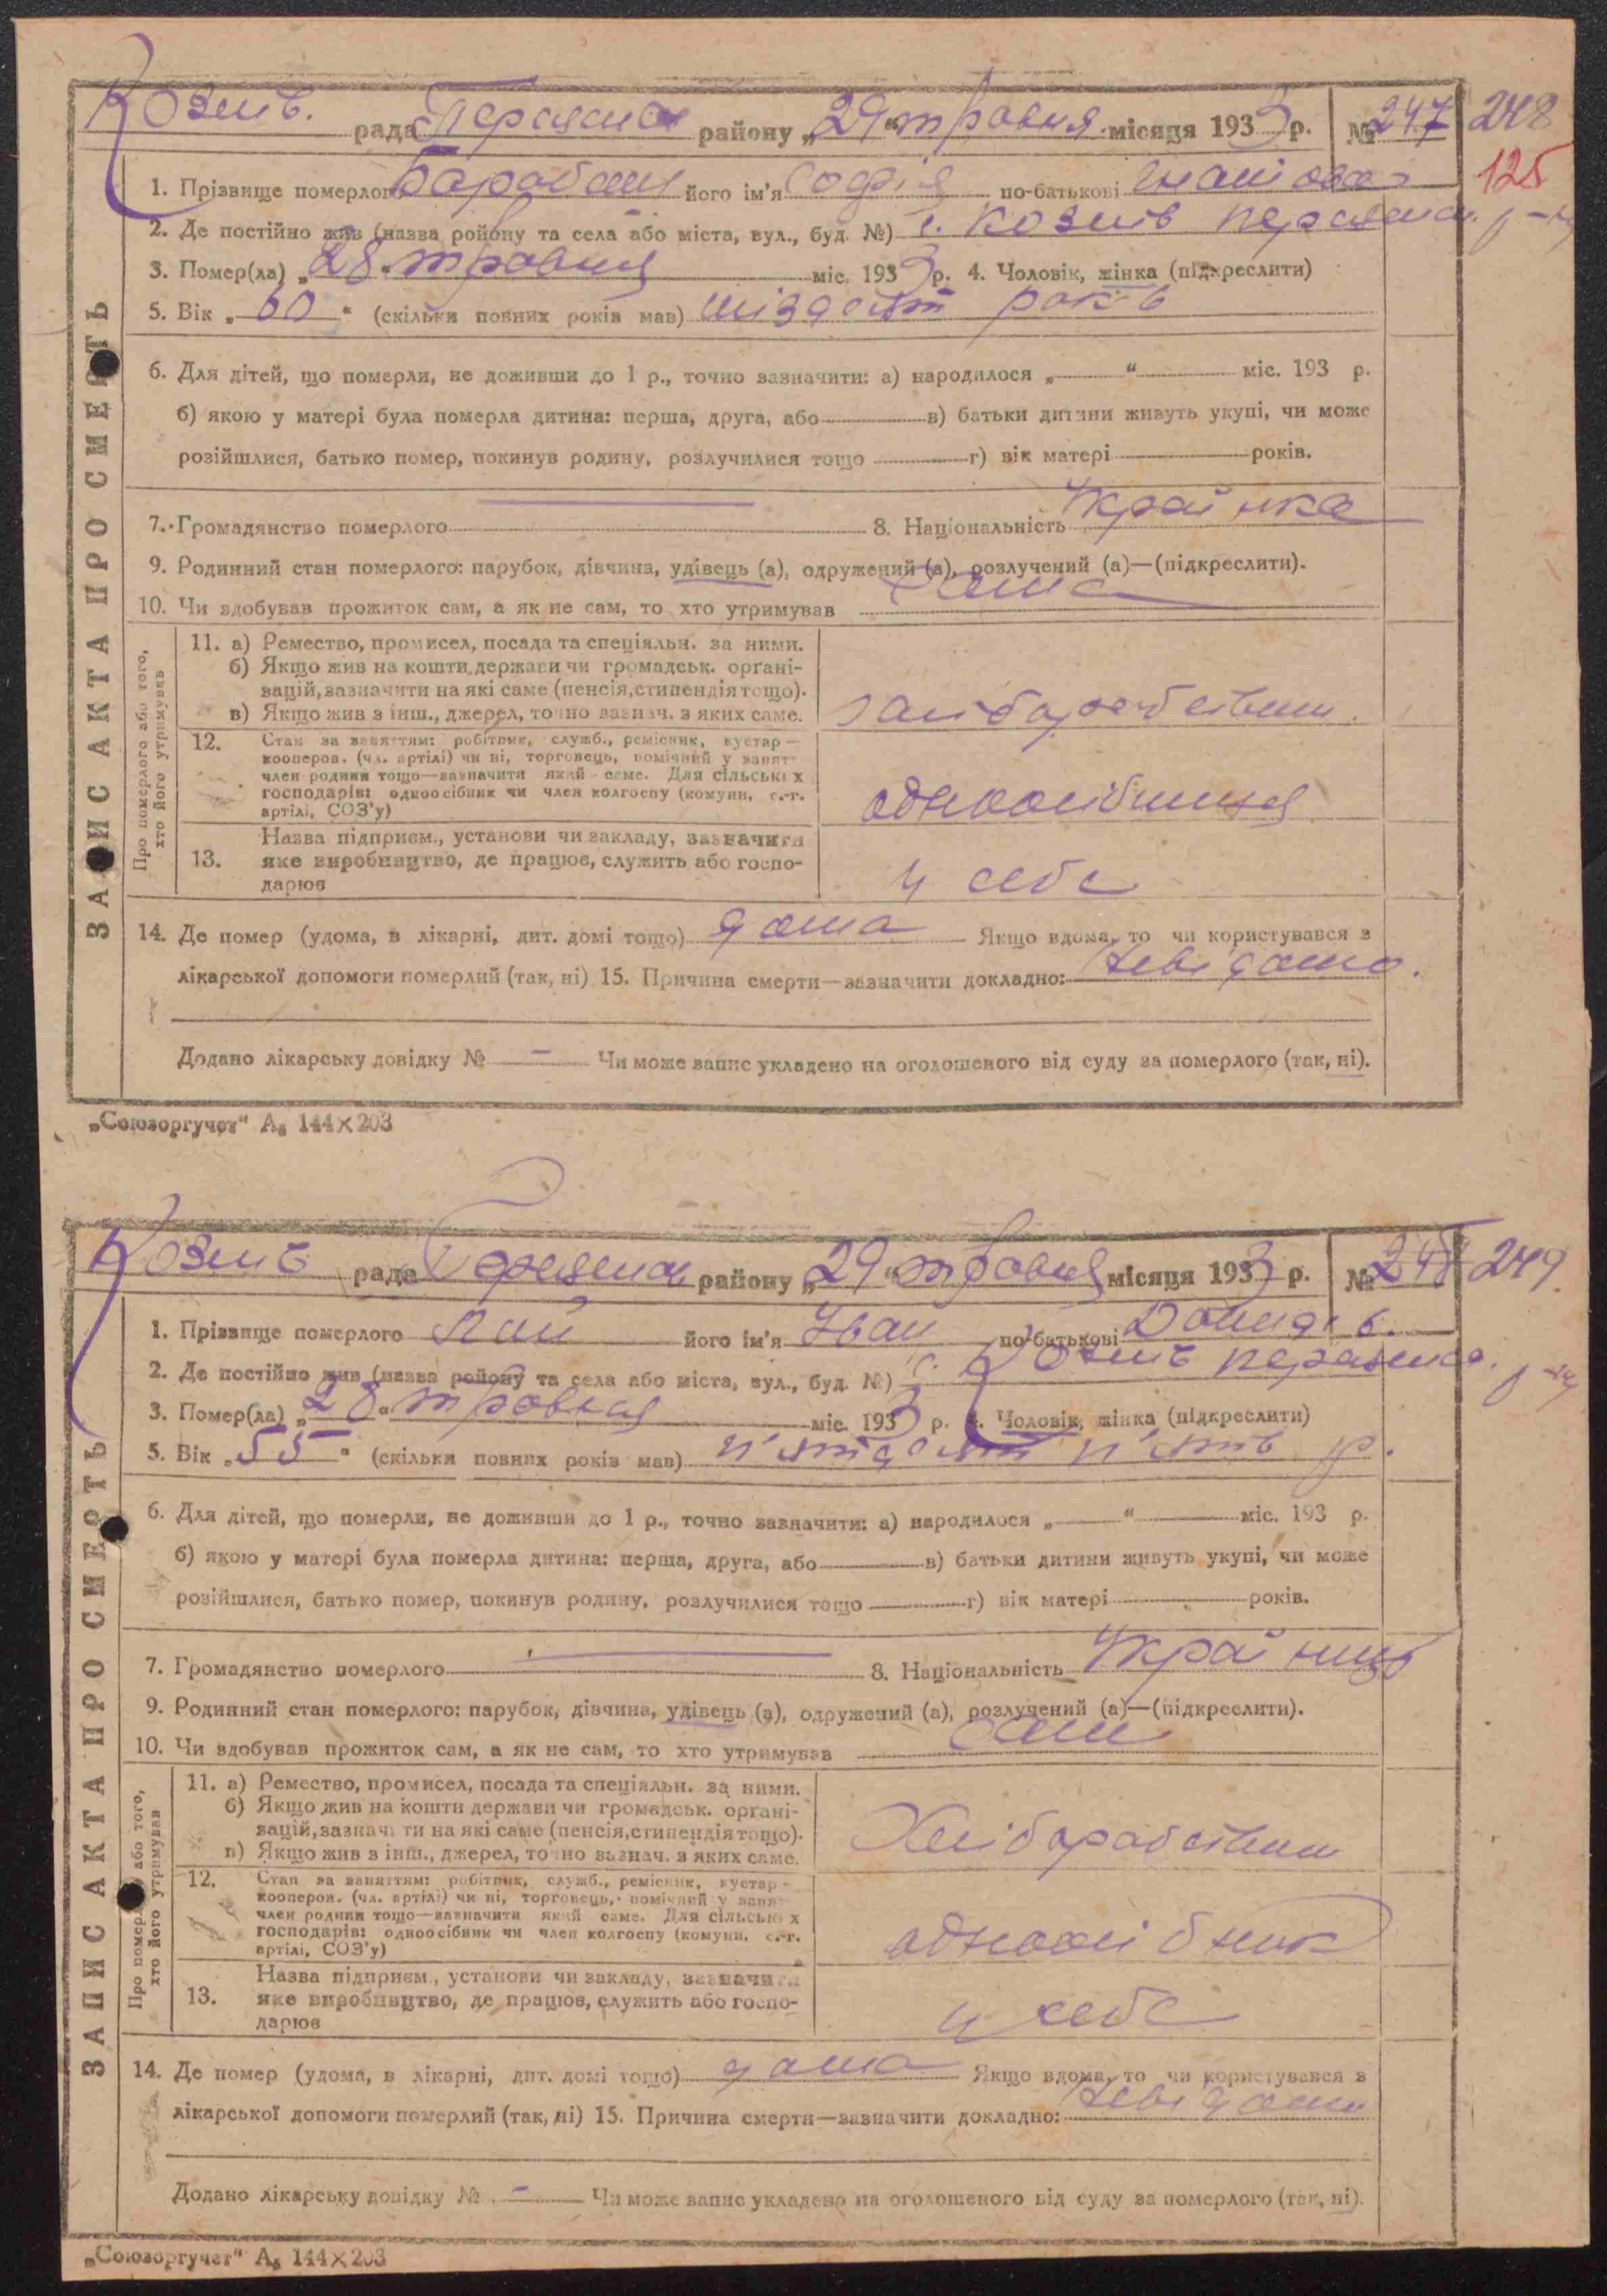 Козин. рада Переяслав району „29“ травня місяця 1933 р. № 247 248
125
1. Прізвище померлого Барабаш його ім'я Софія по-батькові
2. Де постійно жив (назва району та села або міста, вул., буд. №) с. Козинів Переяслав. р-ну
3. Помер(ла) „28“ травня міс. 1933 р. 4. Чоловік, жінка (підкреслити)
5. Вік „60“ (скільки повних років мав) шісдесят років
6. Для дітей, що померли, не доживши до 1 р., точно зазначити: а) народилося „ “ міс. 193 р.
б) якою у матері була померла дитина: перша, друга, або в) батьки дитини живуть укупі, чи може
розійшлися, батько помер, покинув родину, розлучилися тощо г) вік матері років.
7. Громадянство померлого 8. Національність Українка
9. Родинний стан померлого: парубок, дівчина, удівець (а), одружений (а), розлучений (а)—(підкреслити).
10. Чи здобував прожиток сам, а як не сам, то хто утримував сама
ЗАПИС АКТА ПРО СМЕРТЬ
Про померлого або того, хто його утримував
11. а) Ремество, промисел, посада та спеціяльн. за ними.
б) Якщо жив на кошти держави чи громадськ. орґані-
зацій, зазначити на які саме (пенсія, стипендія тощо).
в) Якщо жив з інш., джерел, точно зазнач. з яких саме.
12. Стан за заняттям: робітник, служб., ремісник, кустар—
кооперов. (чл. артілі) чи ні, торговець, помічний у занят
член родини тощо—зазначити який саме. Для сільських
господарів: одноосібник чи член колгоспу (комуни, с.-г.
артілі, СОЗ'у)
одноосібниця
13. Назва підприєм., установи чи закладу, зазначити
яке виробництво, де працює, служить або госпо-
дарює
у себе
14. Де помер (удома, в лікарні, дит. домі тощо) дома Якщо вдома, то чи користувався з
лікарської допомоги померлий (так, ні) 15. Причина смерти—зазначити докладно: невідомо.
Додано лікарську довідку № – Чи може запис укладено на оголошеного від суду за померлого (так, ні).
„Союзоргучет“ А₅ 144×203
Козинів рада Переяслав району „29“ травня місяця 1933 р. № 248 249
1. Прізвище померлого Лай його ім'я Іван по-батькові Данилів.
2. Де постійно жив (назва району та села або міста, вул., буд. №) с. Козинів Переяслав. р-ну
3. Помер(ла) „28“ травня міс. 1933 р. 4. Чоловік, жінка (підкреслити)
5. Вік „55“ (скільки повних років мав) п'ятдесят п'ять р.
6. Для дітей, що померли, не доживши до 1 р., точно зазначити: а) народилося „ “ міс. 193 р.
б) якою у матері була померла дитина: перша, друга, або в) батьки дитини живуть укупі, чи може
розійшлися, батько помер, покинув родину, розлучилися тощо г) вік матері років.
7. Громадянство померлого 8. Національність Українець
9. Родинний стан померлого: парубок, дівчина, удівець (а), одружений (а), розлучений (а)—(підкреслити).
10. Чи здобував прожиток сам, а як не сам, то хто утримував сам
ЗАПИС АКТА ПРО СМЕРТЬ
Про померлого або того, хто його утримував
11. а) Ремество, промисел, посада та спеціяльн. за ними.
б) Якщо жив на кошти держави чи громадськ. орґані-
зацій, зазначити на які саме (пенсія, стипендія тощо).
в) Якщо жив з інш., джерел, точно зазнач. з яких саме.
Хліборобством
12. Стан за заняттям: робітник, служб., ремісник, кустар-
кооперов. (чл. артілі) чи ні, торговець, помічний у занят
член родини тощо—зазначити який саме. Для сільських
господарів: одноосібник чи член колгоспу (комуни, с.-г.
артілі, СОЗ'у)
одноосібник
13. Назва підприєм., установи чи закладу, зазначити
яке виробництво, де працює, служить або госпо-
дарює
у себе
14. Де помер (удома, в лікарні, дит. домі тощо) дома Якщо вдома, то чи користувався з
лікарської допомоги померлий (так, ні) 15. Причина смерти—зазначити докладно: невідомо
Додано лікарську довідку № – Чи може запис укладено на оголошеного від суду за померлого (так, ні).
„Союзоргучет“ А₅ 144×203